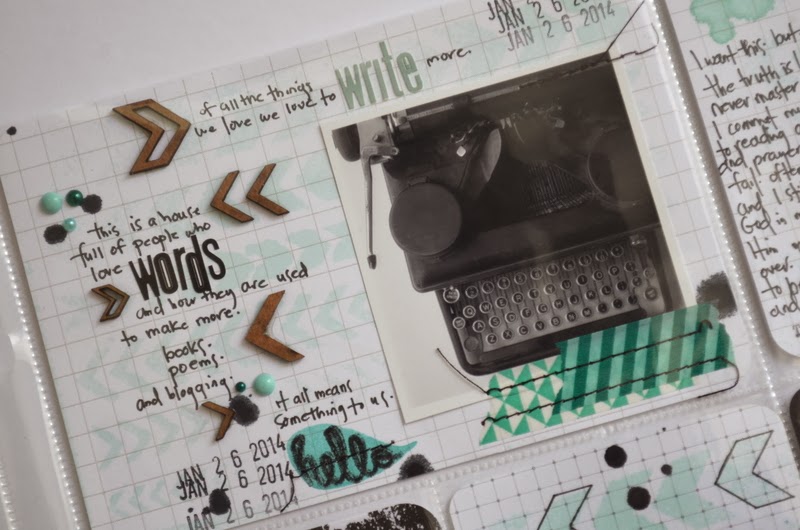 JAN 2 6 2014
JAN 2 6 2014
of all the things
we love we love to write more.
this is a house
full of people who
love words
and how they are used
to make more.
books.
poems.
and blogging.
it all means
something to us.
JAN 2 6 2014
JAN 2 6 2014
JAN 2 6 201
hello
I want this. but
the truth is I
never master
I commit my
to reading a
and prayer
fail often
and I st
God is
Him
over.
to
and